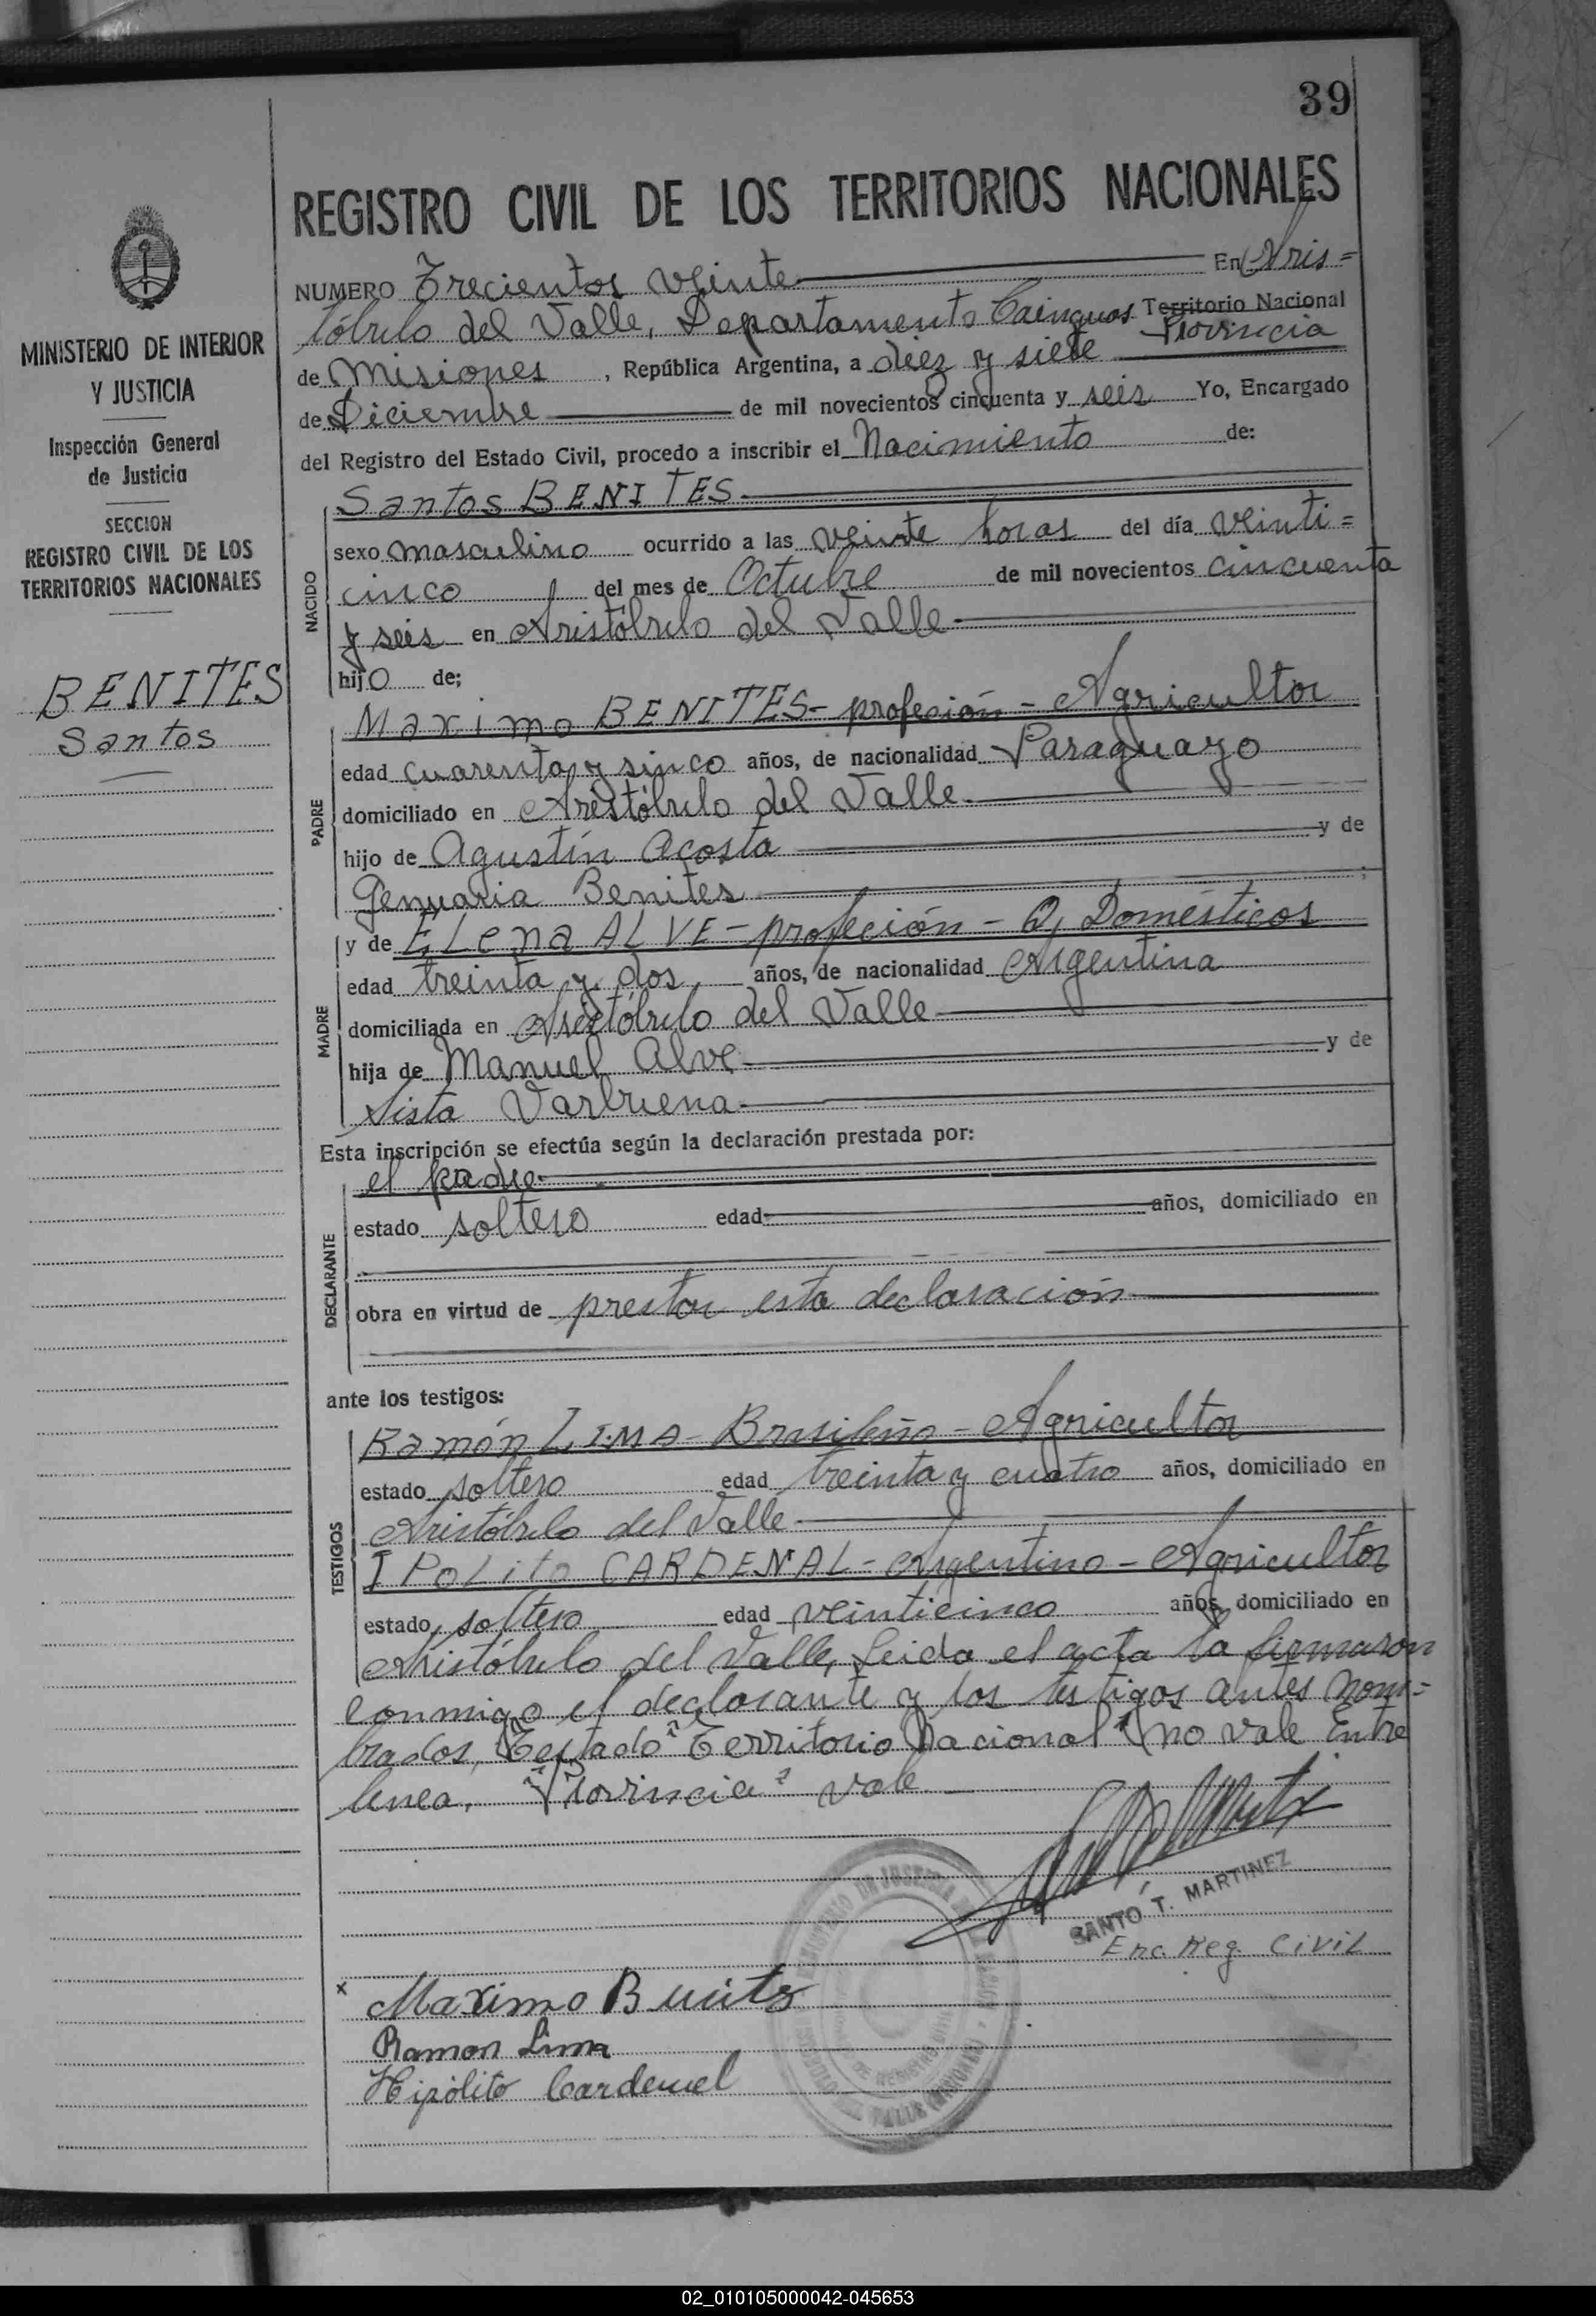 39
REGISTRO CIVIL DE LOS TERRITORIOS NACIONALES
MINISTERIO DE INTERIOR
Y JUSTICIA
Inspección General
de Justicia
SECCION
REGISTRO CIVIL DE LOS
TERRITORIOS NACIONALES
BENITES
Santos
NUMERO Trecientos veinte En Aris=
tóbulo del Valle, Departamento Cainguas Territorio Nacional
Provincia
de Misiones, República Argentina, a diez y siete
de Diciembre de mil novecientos cincuenta y seis Yo, Encargado
del Registro del Estado Civil, procedo a inscribir el Nacimiento de:
NACIDO
Santos BENITES
sexo masculino ocurrido a las veinte horas del día veinti=
cinco del mes de Octubre de mil novecientos cincuenta
y seis en Aristóbulo del Valle
hijo de;
PADRE
Maximo BENITES - profeción - Agricultor
edad cuarenta y sinco años, de nacionalidad Paraguayo
domiciliado en Aristóbulo del Valle
hijo de Agustín Acosta y de
Genuaria Benites
MADRE
y de ELena ALVE - profeción - Q, Domésticos
edad treinta y dos años, de nacionalidad Argentina
domiciliada en Aristóbulo del Valle
hija de Manuel Alve y de
Sista Varbuena
Esta inscripción se efectúa según la declaración prestada por:
DECLARANTE
el padre
estado soltero edad años, domiciliado en
obra en virtud de prestar esta declaración
ante los testigos:
TESTIGOS
Ramón LIMA - Brasileño - Agricultor
estado soltero edad treinta y cuatro años, domiciliado en
Aristóbulo del Valle
IPOLito CARDENAL - Argentino - Agricultor
estado soltero edad veinticinco años, domiciliado en
Aristóbulo del Valle, Leida el acta la firmaron
conmigo el declarante y los testigos antes nom=
brados, Testado "Territorio Nacional" no vale Entre
linea, "Provincia" vale
SANTO T. MARTINEZ
Enc. Reg. CiviL
x Maximo Benitz
Ramon Lima
Hipólito Cardenal
02_010105000042-045653